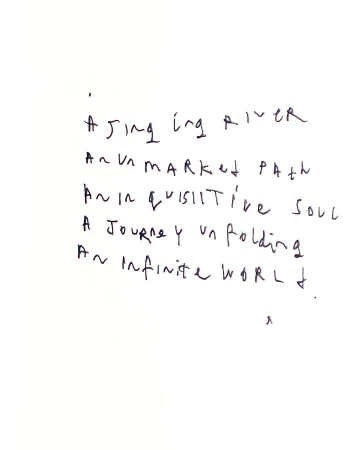 A SINgING RIVER
AN UNMARKED PAth
AN INQUISIITIVE SOUL
A JOURNEY UNfOLdINg
AN INfINItE WORLd